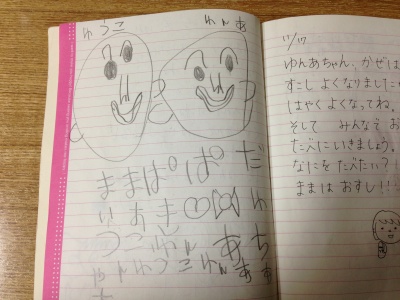 ゆうこ ゆんあ
ままぱぱだ
いすき ゆ
うこゆんあち
ゃんゆうこゆんあ
11/17
ゆんあちゃん、かぜは
すこし よくなりました
はやく よくなってね。
そして みんなで お
たべにいきましょう。
なにを たべたい?
ままは おすし!!